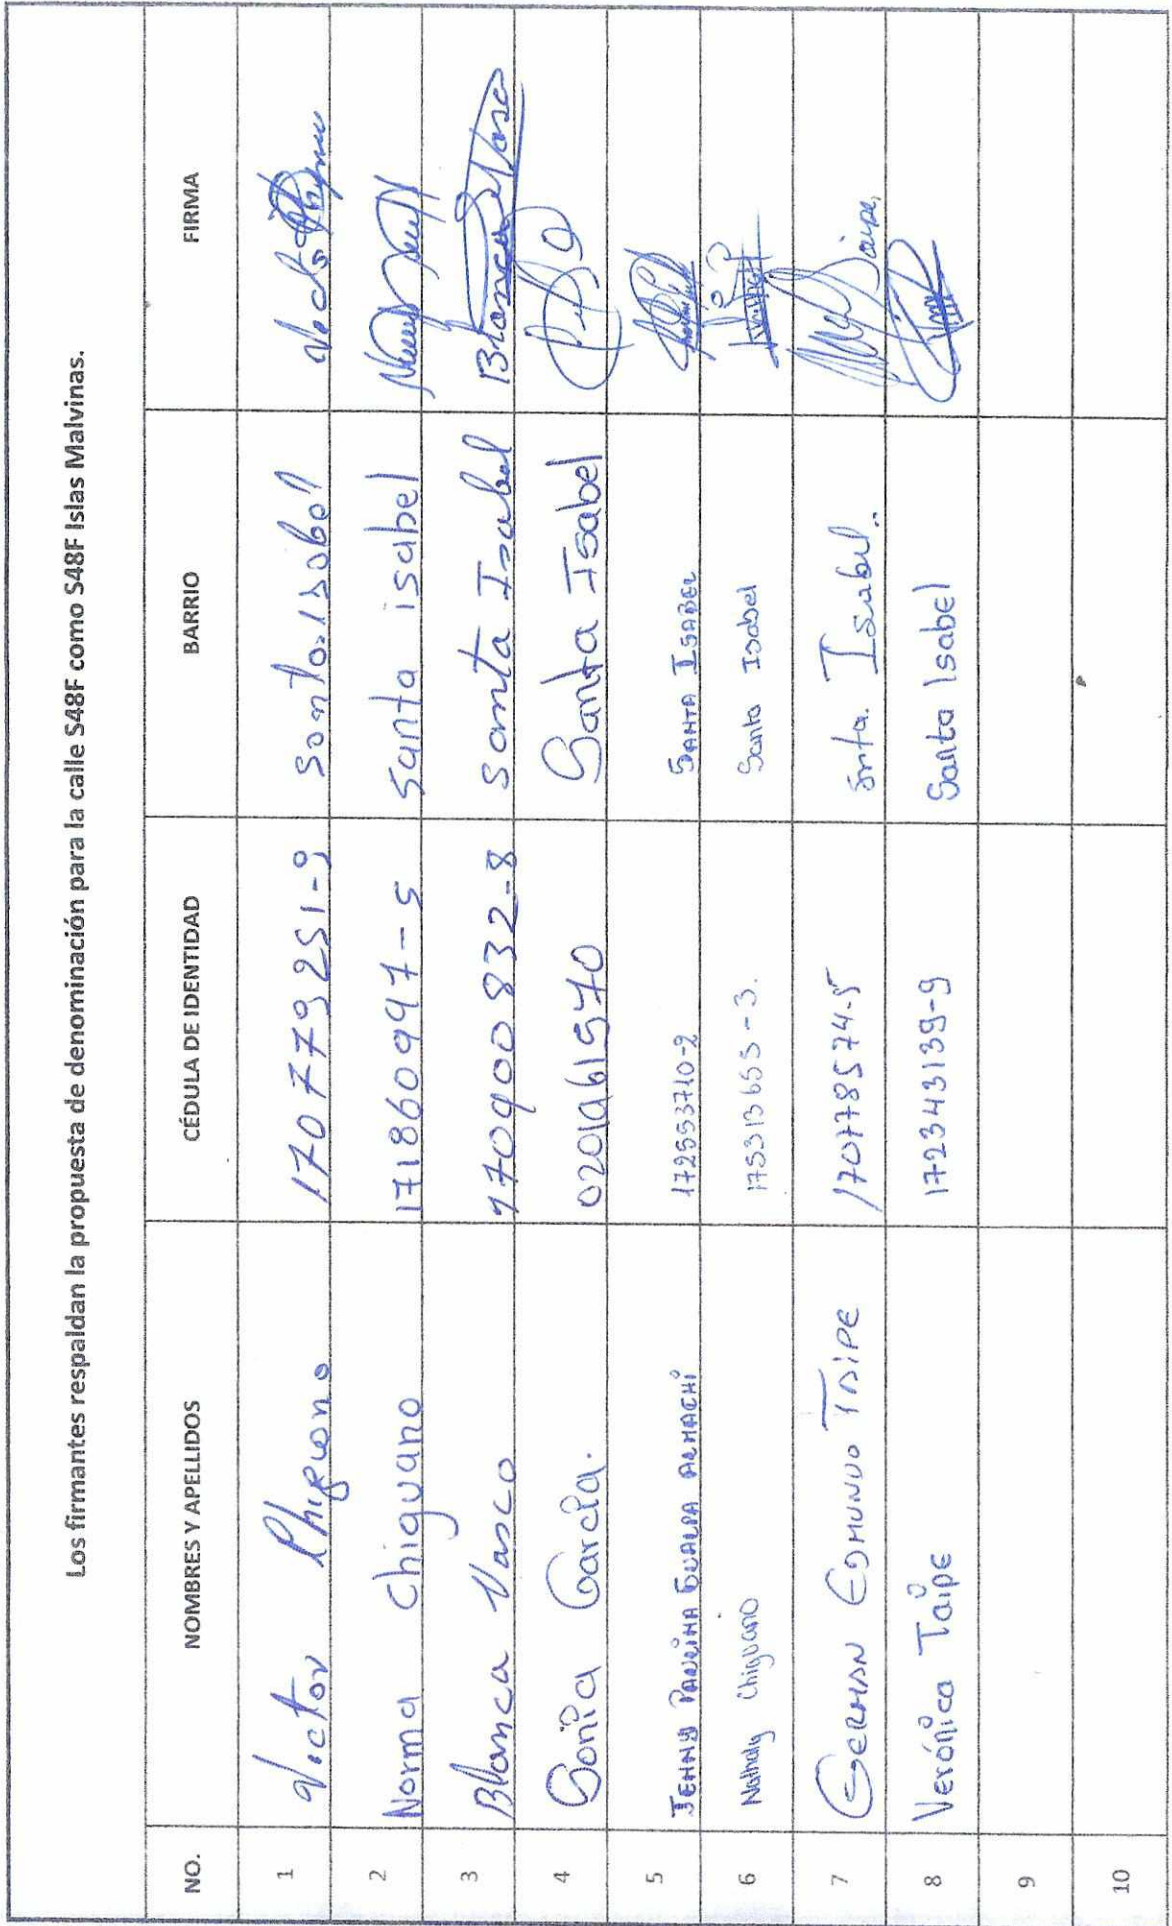 Los firmantes respaldan la propuesta de denominación para la calle S48F como S48F Islas Malvinas.
NO. NOMBRES Y APELLIDOS CÉDULA DE IDENTIDAD BARRIO FIRMA
1 Victor Chiguano 170779251-9 Santa Isabel
2 Norma Chiguano 171860997-5 Santa isabel
3 Blanca Vasco 170900832-8 Santa Isabel Blanca Vasco
4 Sonia García. 0201961570 Santa Isabel
5 JENNY PAULINA GUALPA ALMACHI 172553710-2 SANTA ISABEL
6 Nathaly Chiguano 175313653-3. Santa Isabel
7 GERMAN EDMUNDO TAIPE 170778574-5 Snta. Isabel..
8 Verónica Taipe 172343139-9 Santa Isabel
9
10